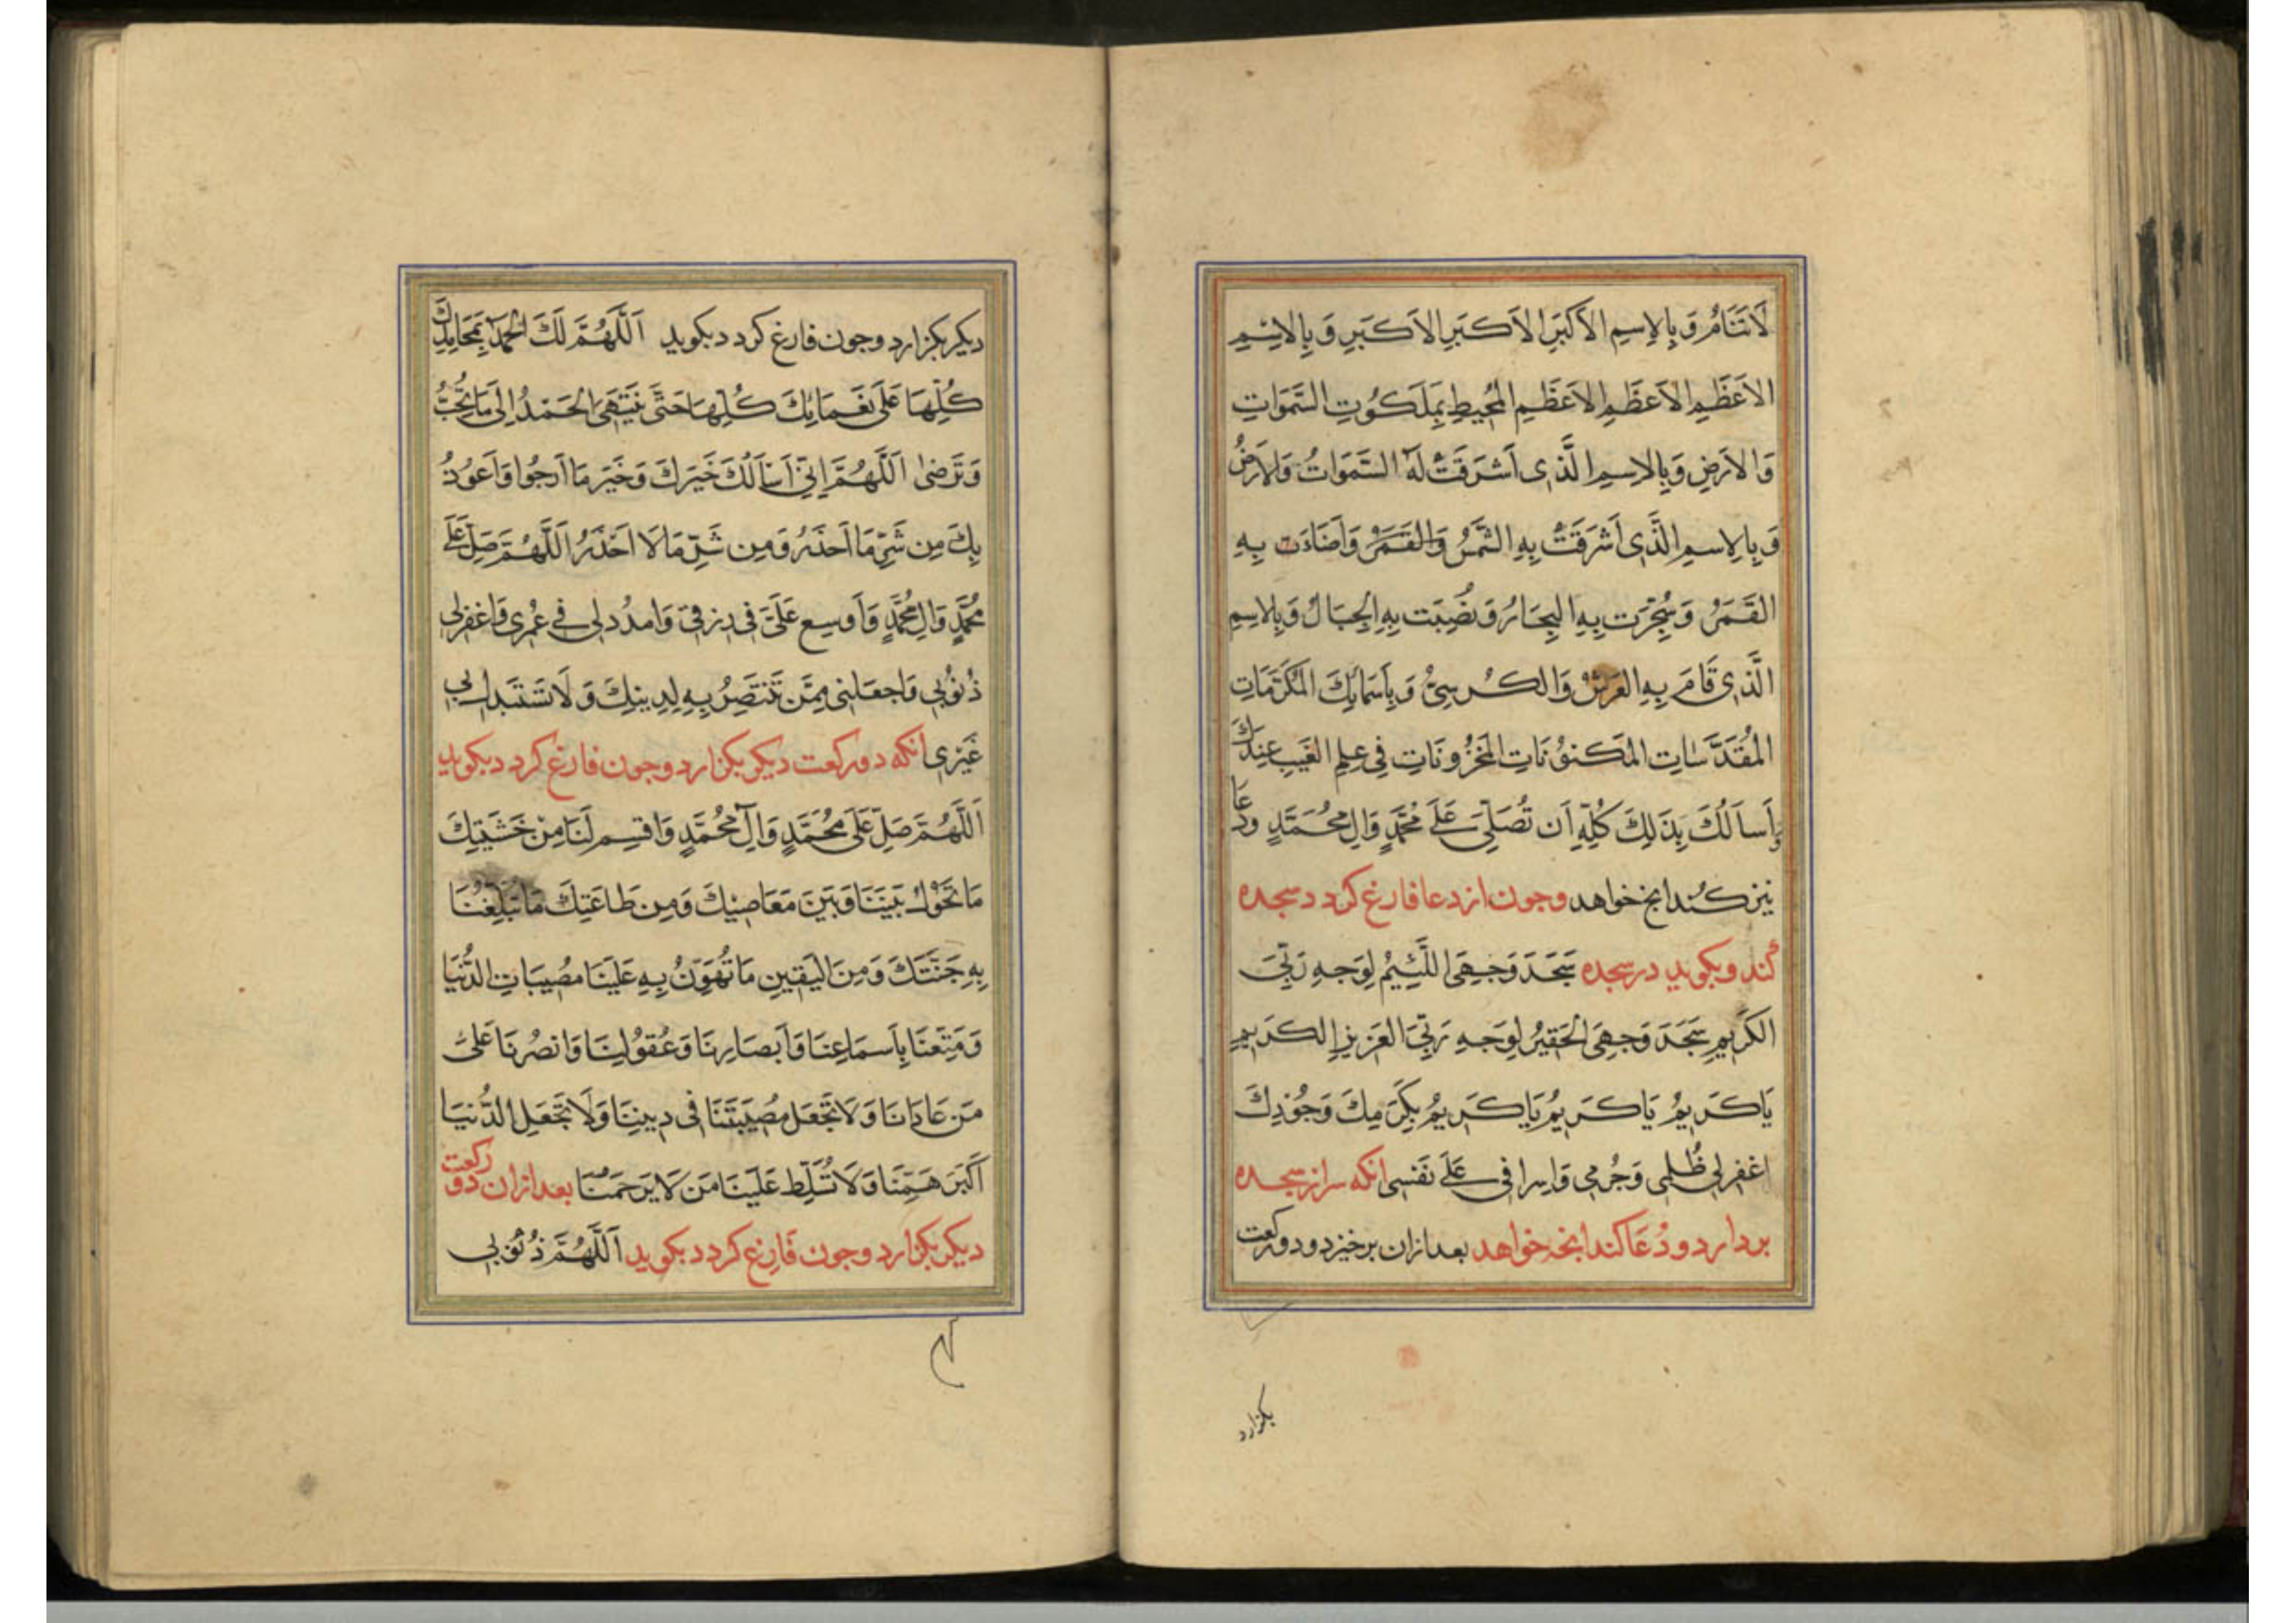 لَا تَنَامُ وَ بِالاِسمِ الاَكبَرِ الاَكبَرِ الاَكبَرِ وَ بِالاِسْمِ
الاَعظَمِ الاَعظَمِ الاَعظَمِ المُحِيطِ بِمَلَكُوتِ السَّمَوَاتِ
وَ الاَرَضِ وَ بِالاِسمِ الَّذِى اَشرَقَتْ لَهُ السَّمَوَاتُ وَالاَرَضُ
وَ بِالاِسمِ الَّذِى اَشرَقَتْ بِهِ الشَّمسُ وَالقَمَرُ وَاَضَاءَت بِهِ
القَمَرُ وَسُجِّرَت بِهِ البِحَارُ وَ نُصِبَت بِهِ الجِبَالُ وَ بِالاِسمِ
الَّذِى قَامَ بِهِ العَرشُ وَالكُرسِىُّ وَ بِاَسمَائِكَ المُكَرَّمَاتِ
المُقَدَّسَاتِ المَكنُونَاتِ المَخزُونَاتِ فِى عِلمِ الغَيبِ عِندَكَ
وَاَسأَلُكَ بِذَلِكَ كُلِّهِ اَن تُصَلِّىَ عَلَى مُحَمَّدٍ وَالِ مُحَمَّدٍ ودُعَا
نيز كند انچ خواهد وجون از دعا فارغ كردد سجده
كند و بكويد در سجده سَجَدَ وَجهِىَ اللَّئِيمُ لِوَجهِ رَبِّىَ
الكَرِيمِ سَجَدَ وَجهِىَ الحَقِيرُ لِوَجهِ رَبِّىَ العَزِيزِ الكَرِيمِ
يَا كَرِيمُ يَا كَرِيمُ يَا كَرِيمُ بِكَرَمِكَ وَجُودِكَ
اغفِرلِى ظُلمِى وَجُرمِى وَاِسرَافِى عَلَى نَفسِى انكه سر از سجده
بردارد و دُعَا كند انچه خواهد بعد ازان برخيزد و دو ركعت
بكزارد
ديكر بكزارد وجون فارغ كردد بكويد اَللَّهُمَّ لَكَ الحَمدُ بِمَحَامِدِكَ
كُلِّهَا عَلَى نَعمَائِكَ كُلِّهَا حَتَّى يَنتَهِىَ الحَمْدُ اِلَى مَا تُحِبُّ
وَتَرضىٰ اَللَّهُمَّ اِنِّى اَسأَلُكَ خَيرَكَ وَخَيرَ مَا اَرجُوا وَاَعُوذُ
بِكَ مِن شَرِّ مَا اَحذَرُ وَمِن شَرِّ مَا لَا اَحذَرُ اَللَّهُمَّ صَلِّ عَلَى
مُحَمَّدٍ وَالِ مُحَمَّدٍ وَاَوسِع عَلَىَّ فى رِزقِى وَامدُد لى فِى عُمرِى وَاغفِرلِى
ذُنُوبِى وَاجعَلنِى مِمَّن تَنتَصِرُ بِهِ لِدِينِكَ وَ لَا تَستَبدِل بِى
غَيرِى انكه دو ركعت ديكر بكزارد وجون فارغ كردد بكويد
اَللَّهُمَّ صَلِّ عَلَى مُحَمَّدٍ وَآلِ مُحَمَّدٍ وَاقسِم لَنَا مِنْ خَشيَتِكَ
مَا تَحُولُ بَينَنَا وَبَينَ مَعَاصِيكَ وَمِن طَاعَتِكَ مَا تُبَلِّغُنَا
بِهِ جَنَّتَكَ وَمِنَ اليَقِينِ مَا تُهَوِّنُ بِهِ عَلَينَا مُصِيبَاتِ الدُّنيَا
وَمَتِّعنَا بِاَسمَاعِنَا وَاَبصَارِنَا وَعُقُولِنَا وَانصُرنَا عَلَى
مَن عَادَانَا وَ لَا تَجعَل مُصِيبَتَنَا فى دِينِنَا وَلَا تَجعَلِ الدُّنيَا
اَكبَرَ هَمِّنَا وَ لَا تُسَلِّط عَلَينَا مَن لَا يَرحَمُنَا بعد ازان دو ركعت
ديكر بكزارد وجون فَارِغ كردد بكويد اَللَّهُمَّ ذُنُوبِى